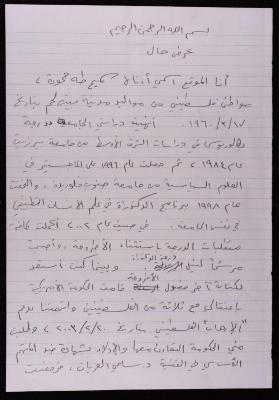 بسم الله الرحمن الرحيم
عرض حال
أنا الموقع اسمي أدناه سميح طه حمودة،
مواطن فلسطيني من مواليد مدينة بيت لحم بتاريخ
١٩٦٠/٣/١٧. أنهيت دراستي الجامعية بدرجة
بكالوريوس في دراسات الشرق الأوسط من جامعة بيرزيت
عام ١٩٨٤، ثم حصلت عام ١٩٩٦ على الماجستير في
العلوم السياسية من جامعة جنوب فلوريدا، والتحقت
عام ١٩٩٨ ببرنامج الدكتوراة في علم الإنسان التطبيقي
في نفس الجامعة. في صيف عام ٢٠٠٢ أكملت كافة
متطلبات الدرجة باستثناء الأطروحة، وأصبحت
مرشحاً لنيل درجة الدكتوراة. وبينما كنت أستعد
لكتابة آخر فصول الأطروحة قامت الحكومة الأمريكية
باعتقالي مع ثلاثة من الفلسطينيين واتهمتنا بدعم
"الإرهاب" الفلسطيني بتاريخ ٢٠٠٣/٢/٢٠، وطلبت
مني الحكومة التعاون معها والإدلاء بشهادة ضد المتهم
الأساسي في القضية د. سامي العريان، فرفضت